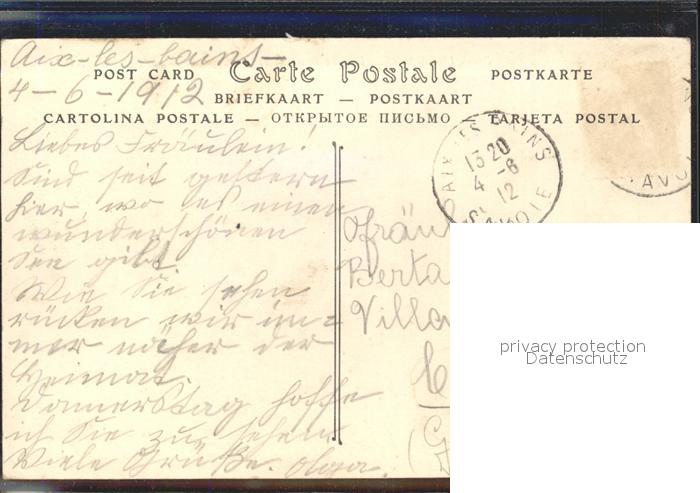 Aix-les-bains-
4-6-1912
POST CARD Carte Postale POSTKARTE
BRIEFKAART — POSTKAART
CARTOLINA POSTALE — ОТКРЫТОЕ ПИСЬМО — TARJETA POSTAL
Liebes Fräulein!
Sind seit gestern
hier, wo es einen
wunderschönen
See gibt.
Wie Sie sehen
rücken wir im=
mer näher der
Heimat.
Donnerstag hoffe
ich Sie zu sehen
Viele Grüße. Olga.
AIX-LES-BAINS
13 20
4 -6
12
SAVOIE
AVO
Fräu
Berta
Villa
privacy protection
Datenschutz